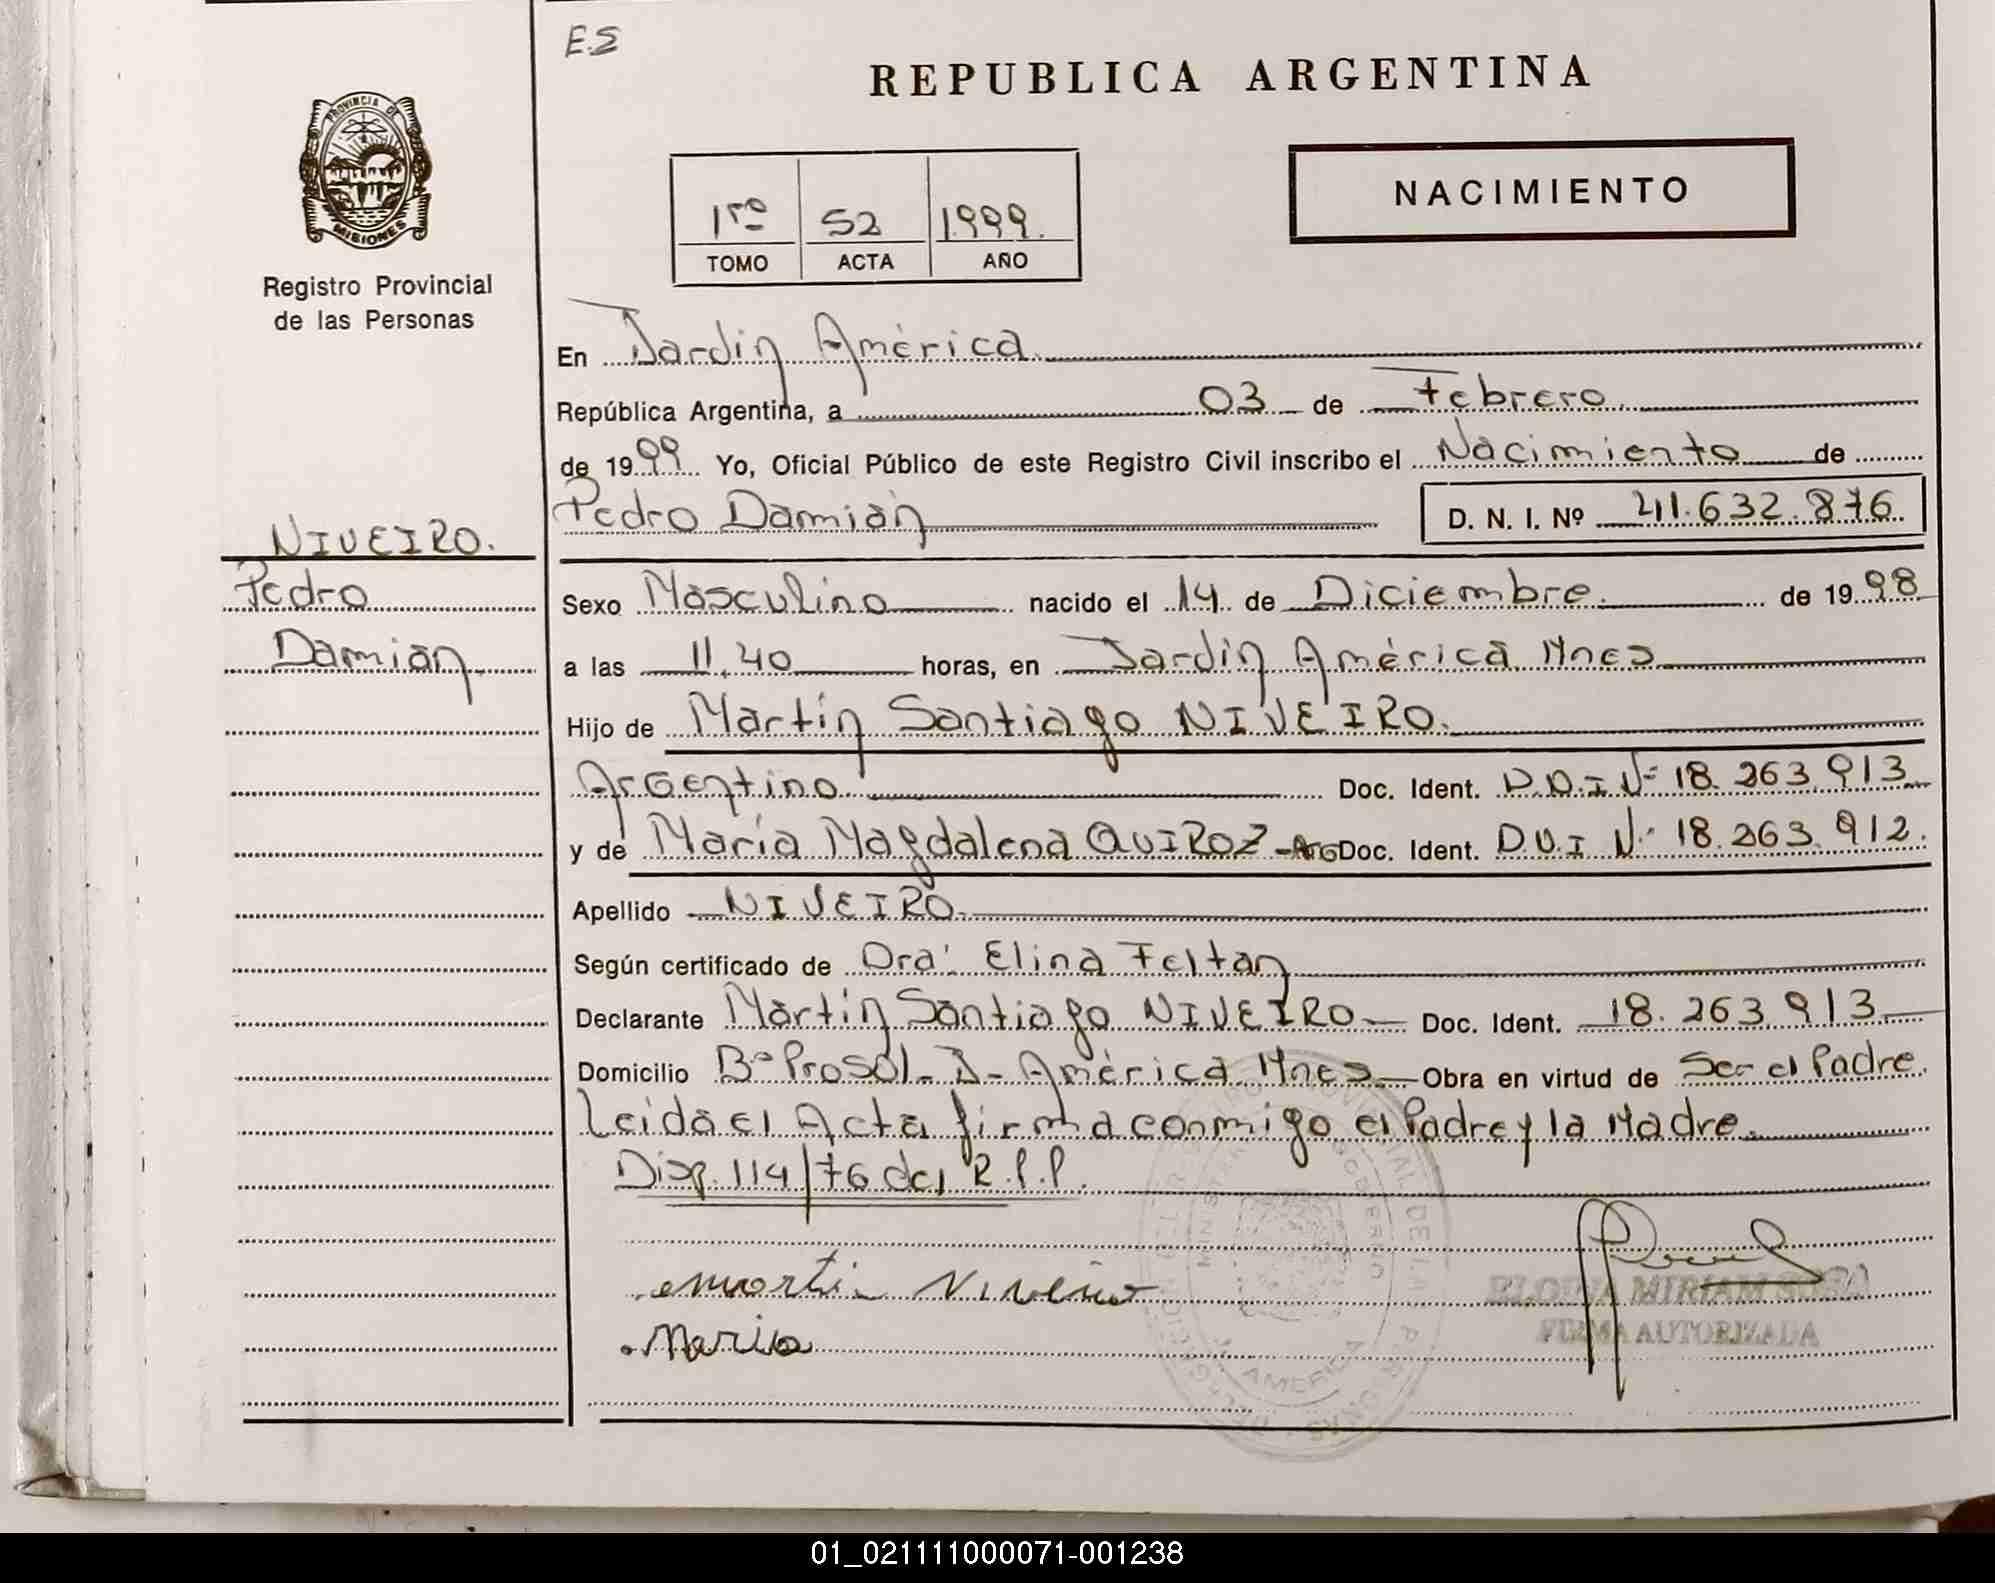 E.S
REPUBLICA ARGENTINA
PROVINCIA DE
MISIONES
1ro 52 1999.
TOMO ACTA AÑO
NACIMIENTO
Registro Provincial
de las Personas
En Jardín América
República Argentina, a 03 de Febrero
de 1999 Yo, Oficial Público de este Registro Civil inscribo el Nacimiento de
Pedro Damián D. N. I. Nº 41.632.876
NIVEIRO.
Pedro
Damián
Sexo Masculino nacido el 14 de Diciembre de 1998
a las 11,40 horas, en Jardín América Mnes
Hijo de Martín Santiago NIVEIRO.
Argentino Doc. Ident. D.N.I Nº 18.263.913
y de María Magdalena QUIROZ - Arg Doc. Ident. D.N.I Nº 18.263.912.
Apellido NIVEIRO
Según certificado de Dra. Elina Feltan
Declarante Martín Santiago NIVEIRO Doc. Ident. 18.263.913
Domicilio Bº Prosol - J- América Mnes Obra en virtud de Ser el Padre
Leida el Acta firma conmigo el Padre y la Madre.
Disp. 114/76 del R.P.P.
Martin Niveiro
Maria
MIRIAM SOSA
FIRMA AUTORIZADA
01_021111000071-001238